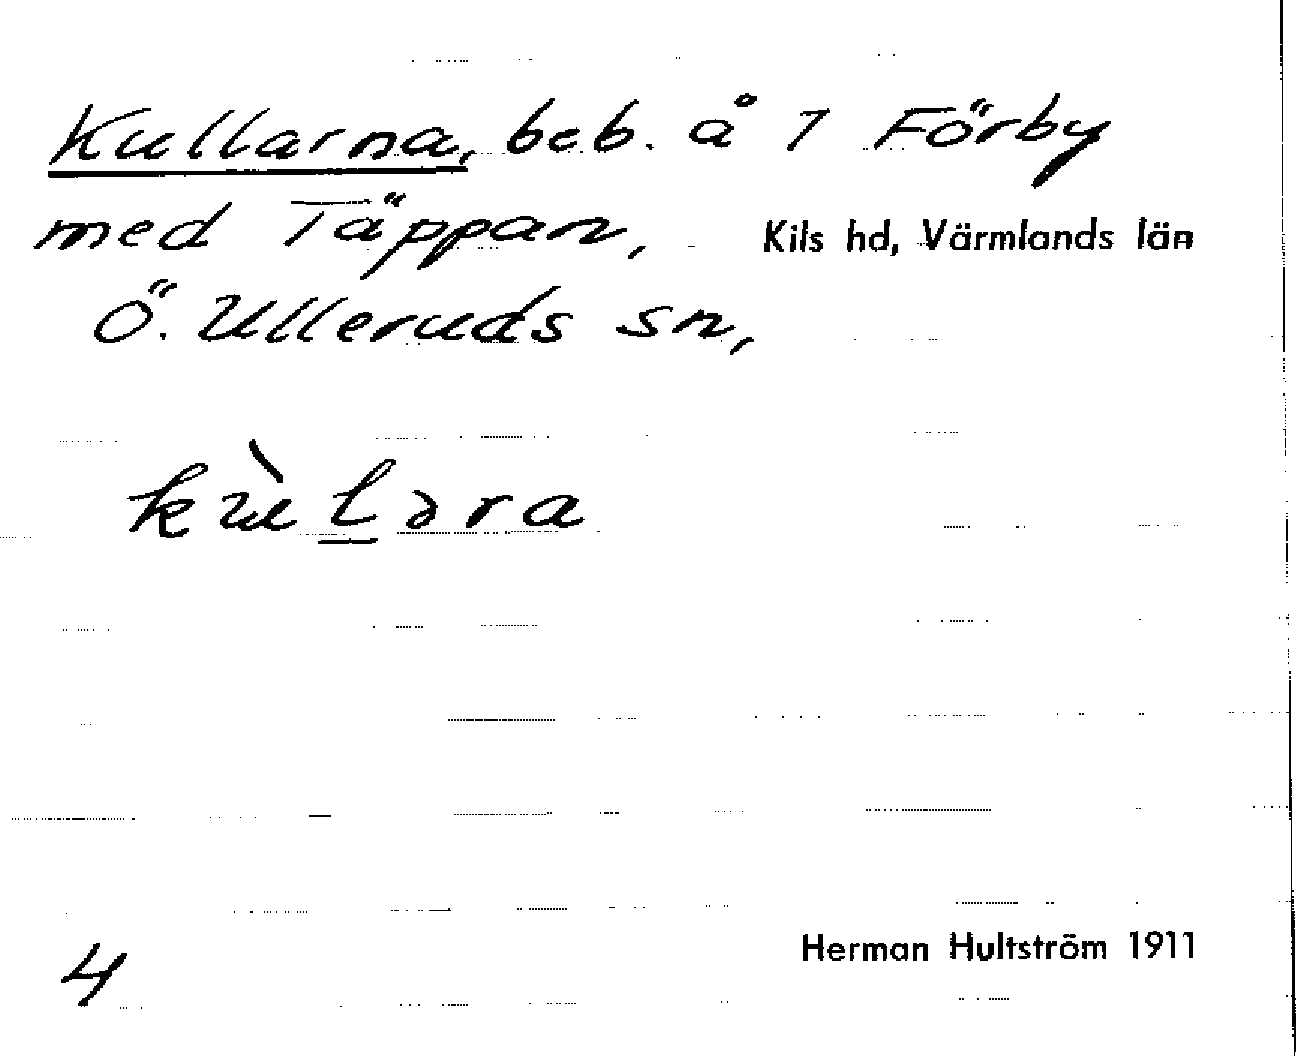 Kullarna, beb. å 7 Förby
med Täppan, Kils hd, Värmlands län
Ö. Ulleruds sn,
4
Herman Hultström 1911